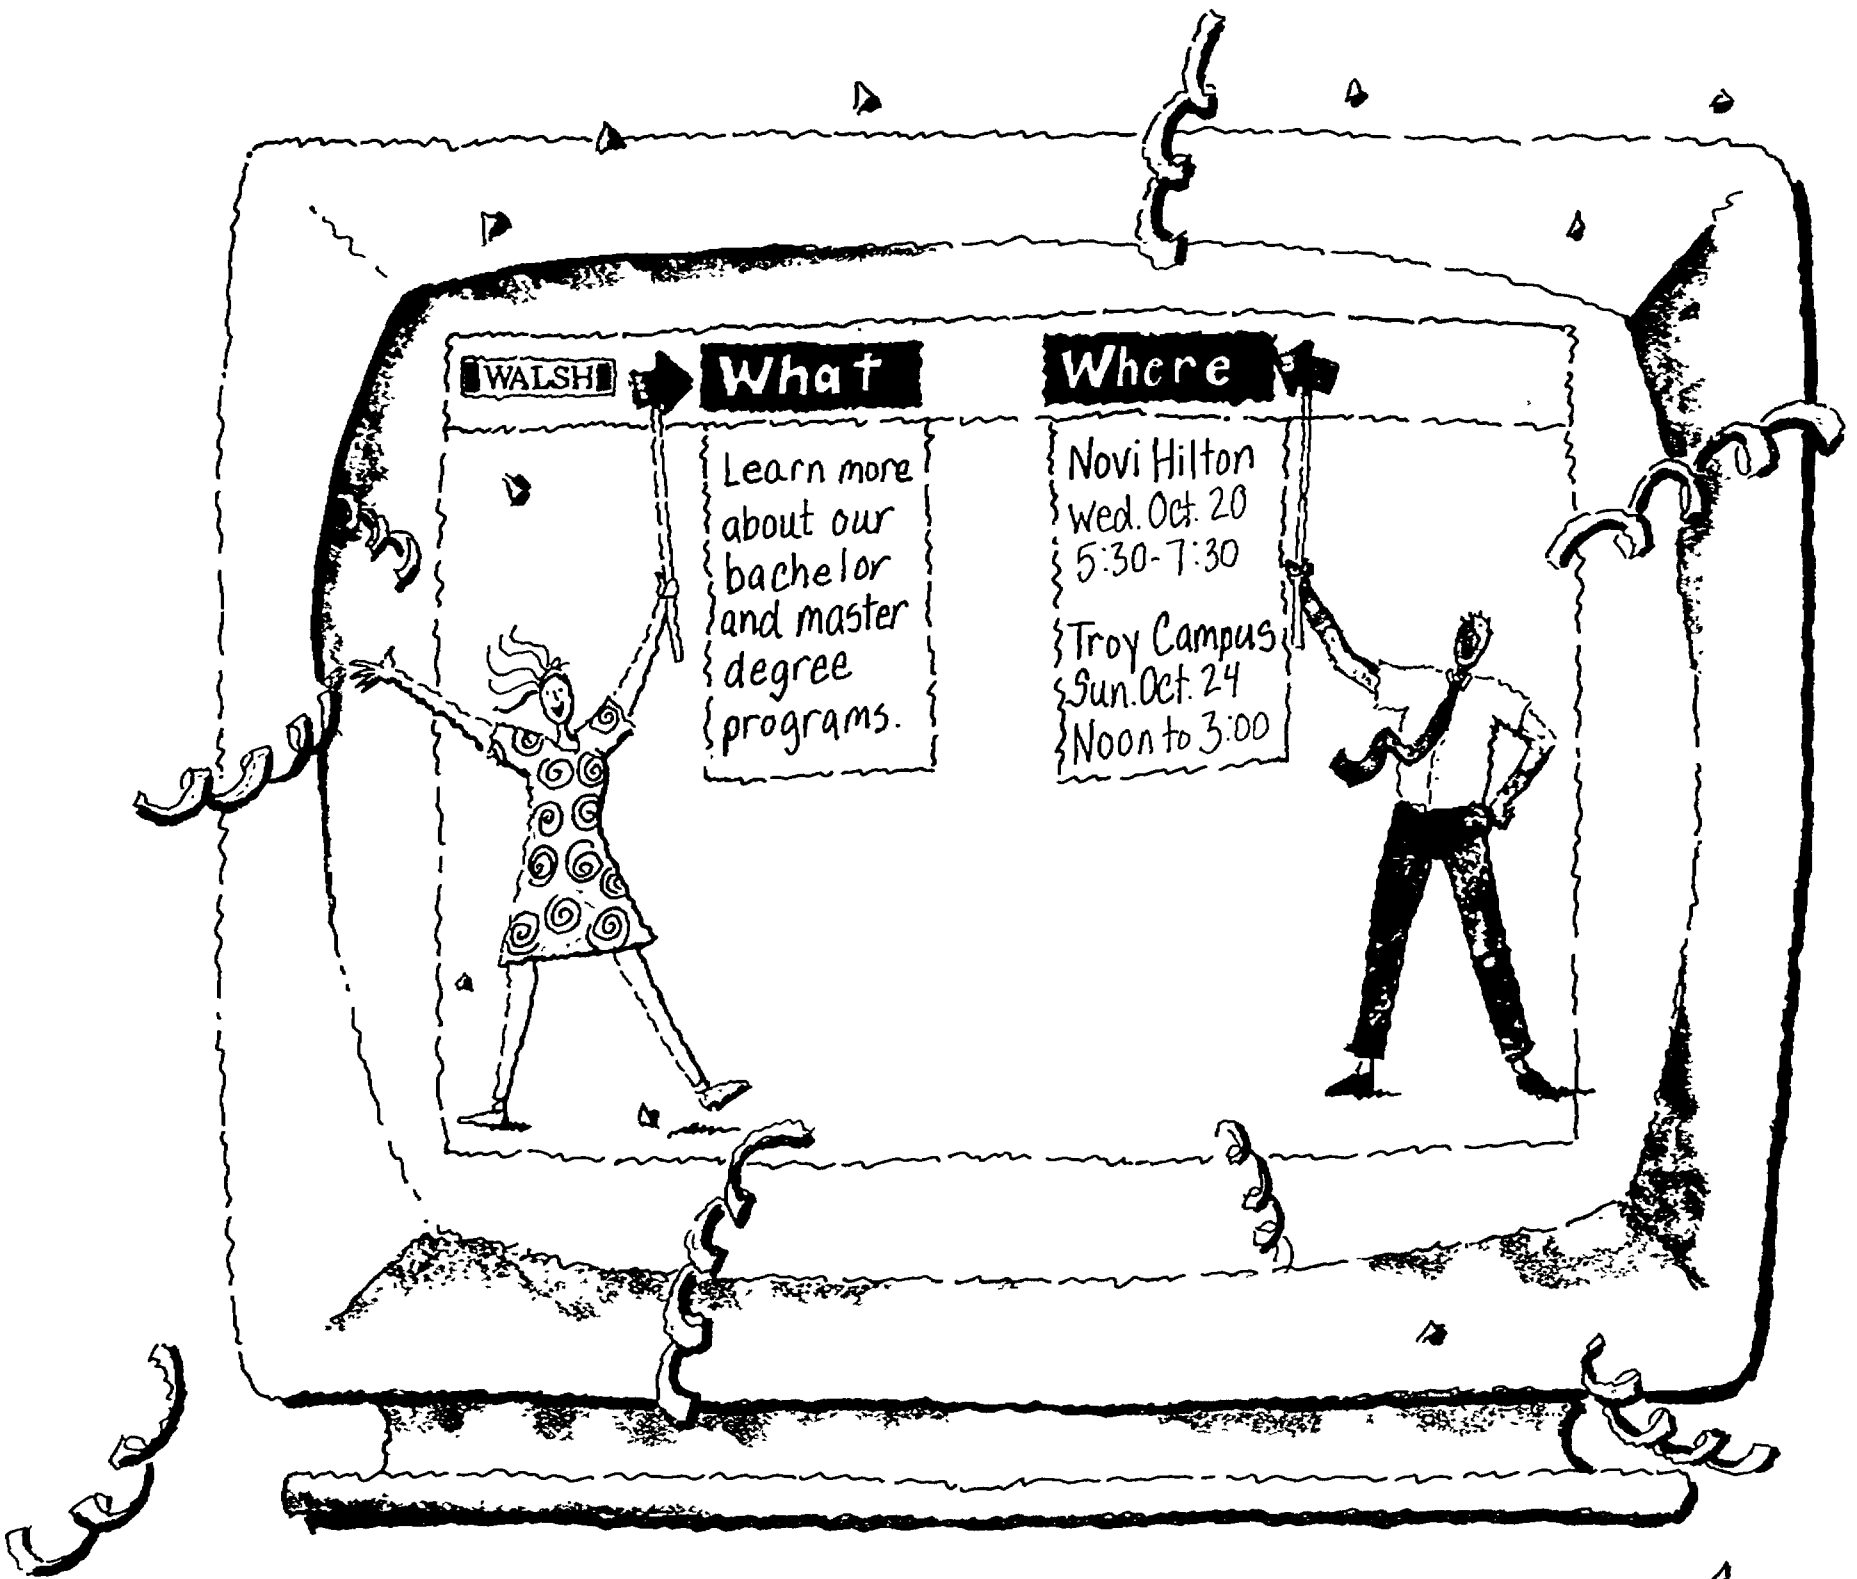 WALSH
What
Learn more
about our
bachelor
and master
degree
programs.
Where
Novi Hilton
Wed. Oct. 20
5:30-7:30
Troy Campus
Sun. Oct. 24
Noon to 3:00